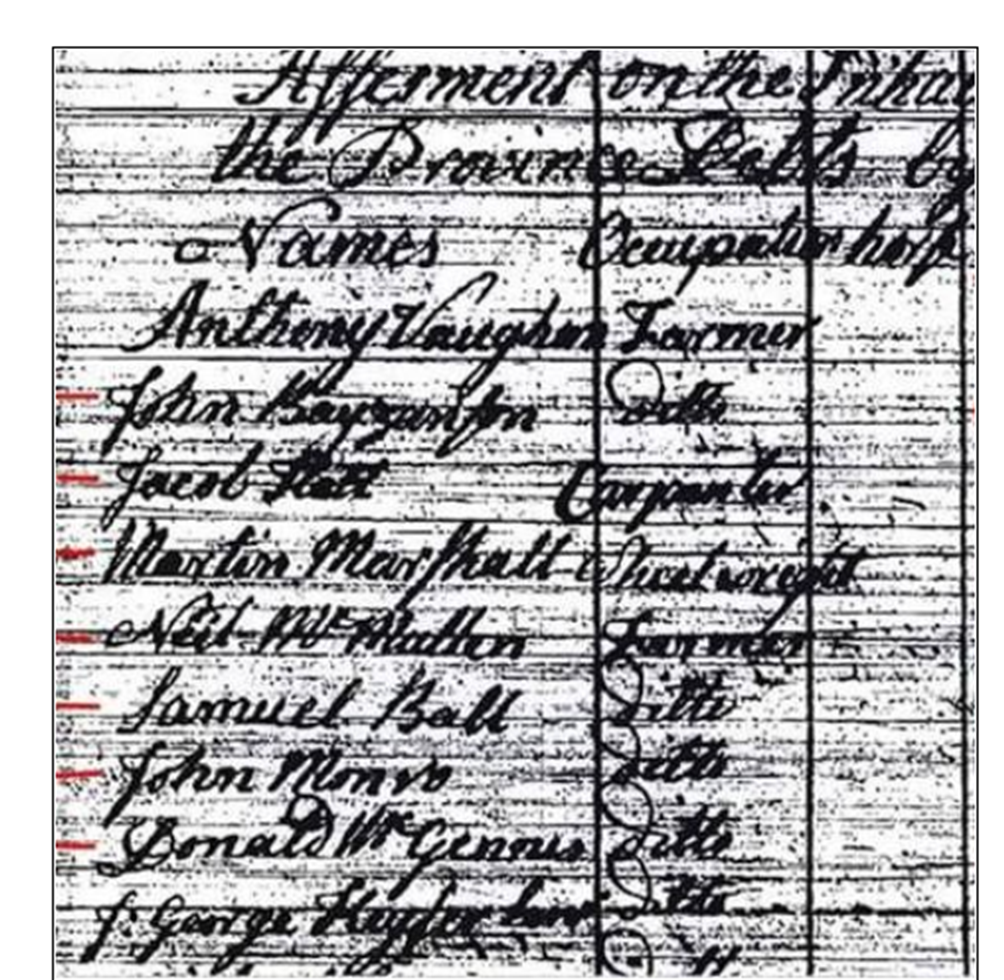 Assesment on the Inha
the Province Debts by
Names Occupation
Anthony Vaughan Farmer
John ditto
Jacob Carpenter
Martin Marshall Wheelwright
Neil Mc Mullen Farmer
Samuel Ball ditto
John Monro ditto
Donald Mc Gennis ditto
George ditto